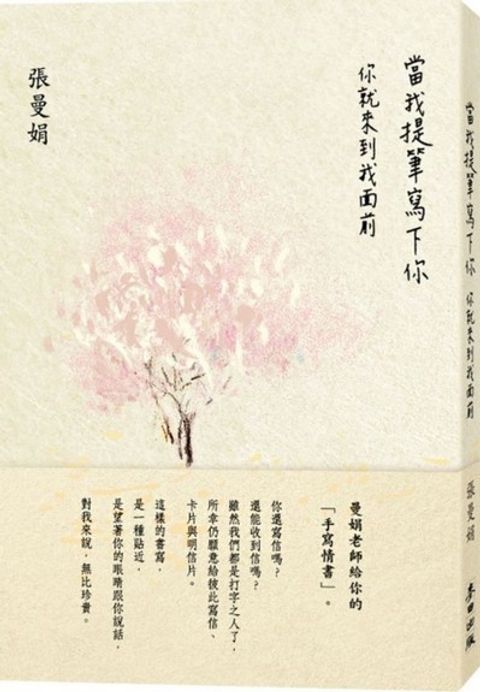 當我提筆寫下你
你就來到我面前
張曼娟
曼娟老師給你的
「手寫情書」。
你還寫信嗎?
還能收到信嗎?
雖然我們都是打字之人了,
所幸仍願意給彼此寫信、
卡片與明信片。
這樣的書寫,
是一種貼近,
是望著你的眼睛跟你說話,
對我來說,無比珍貴。
當我提筆寫下你 你就來到我面前 張曼娟 麥田出版